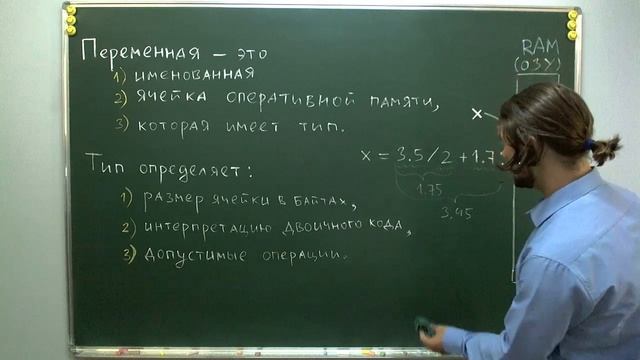 Переменная – это
1) именованная
2) ячейка оперативной памяти,
3) которая имеет тип.
Тип определяет:
1) размер ячейки в байтах,
2) интерпретацию двоичного кода,
3) допустимые операции.
RAM
(ОЗУ)
x
x = 3.5/2 + 1.7
1.75
3.45